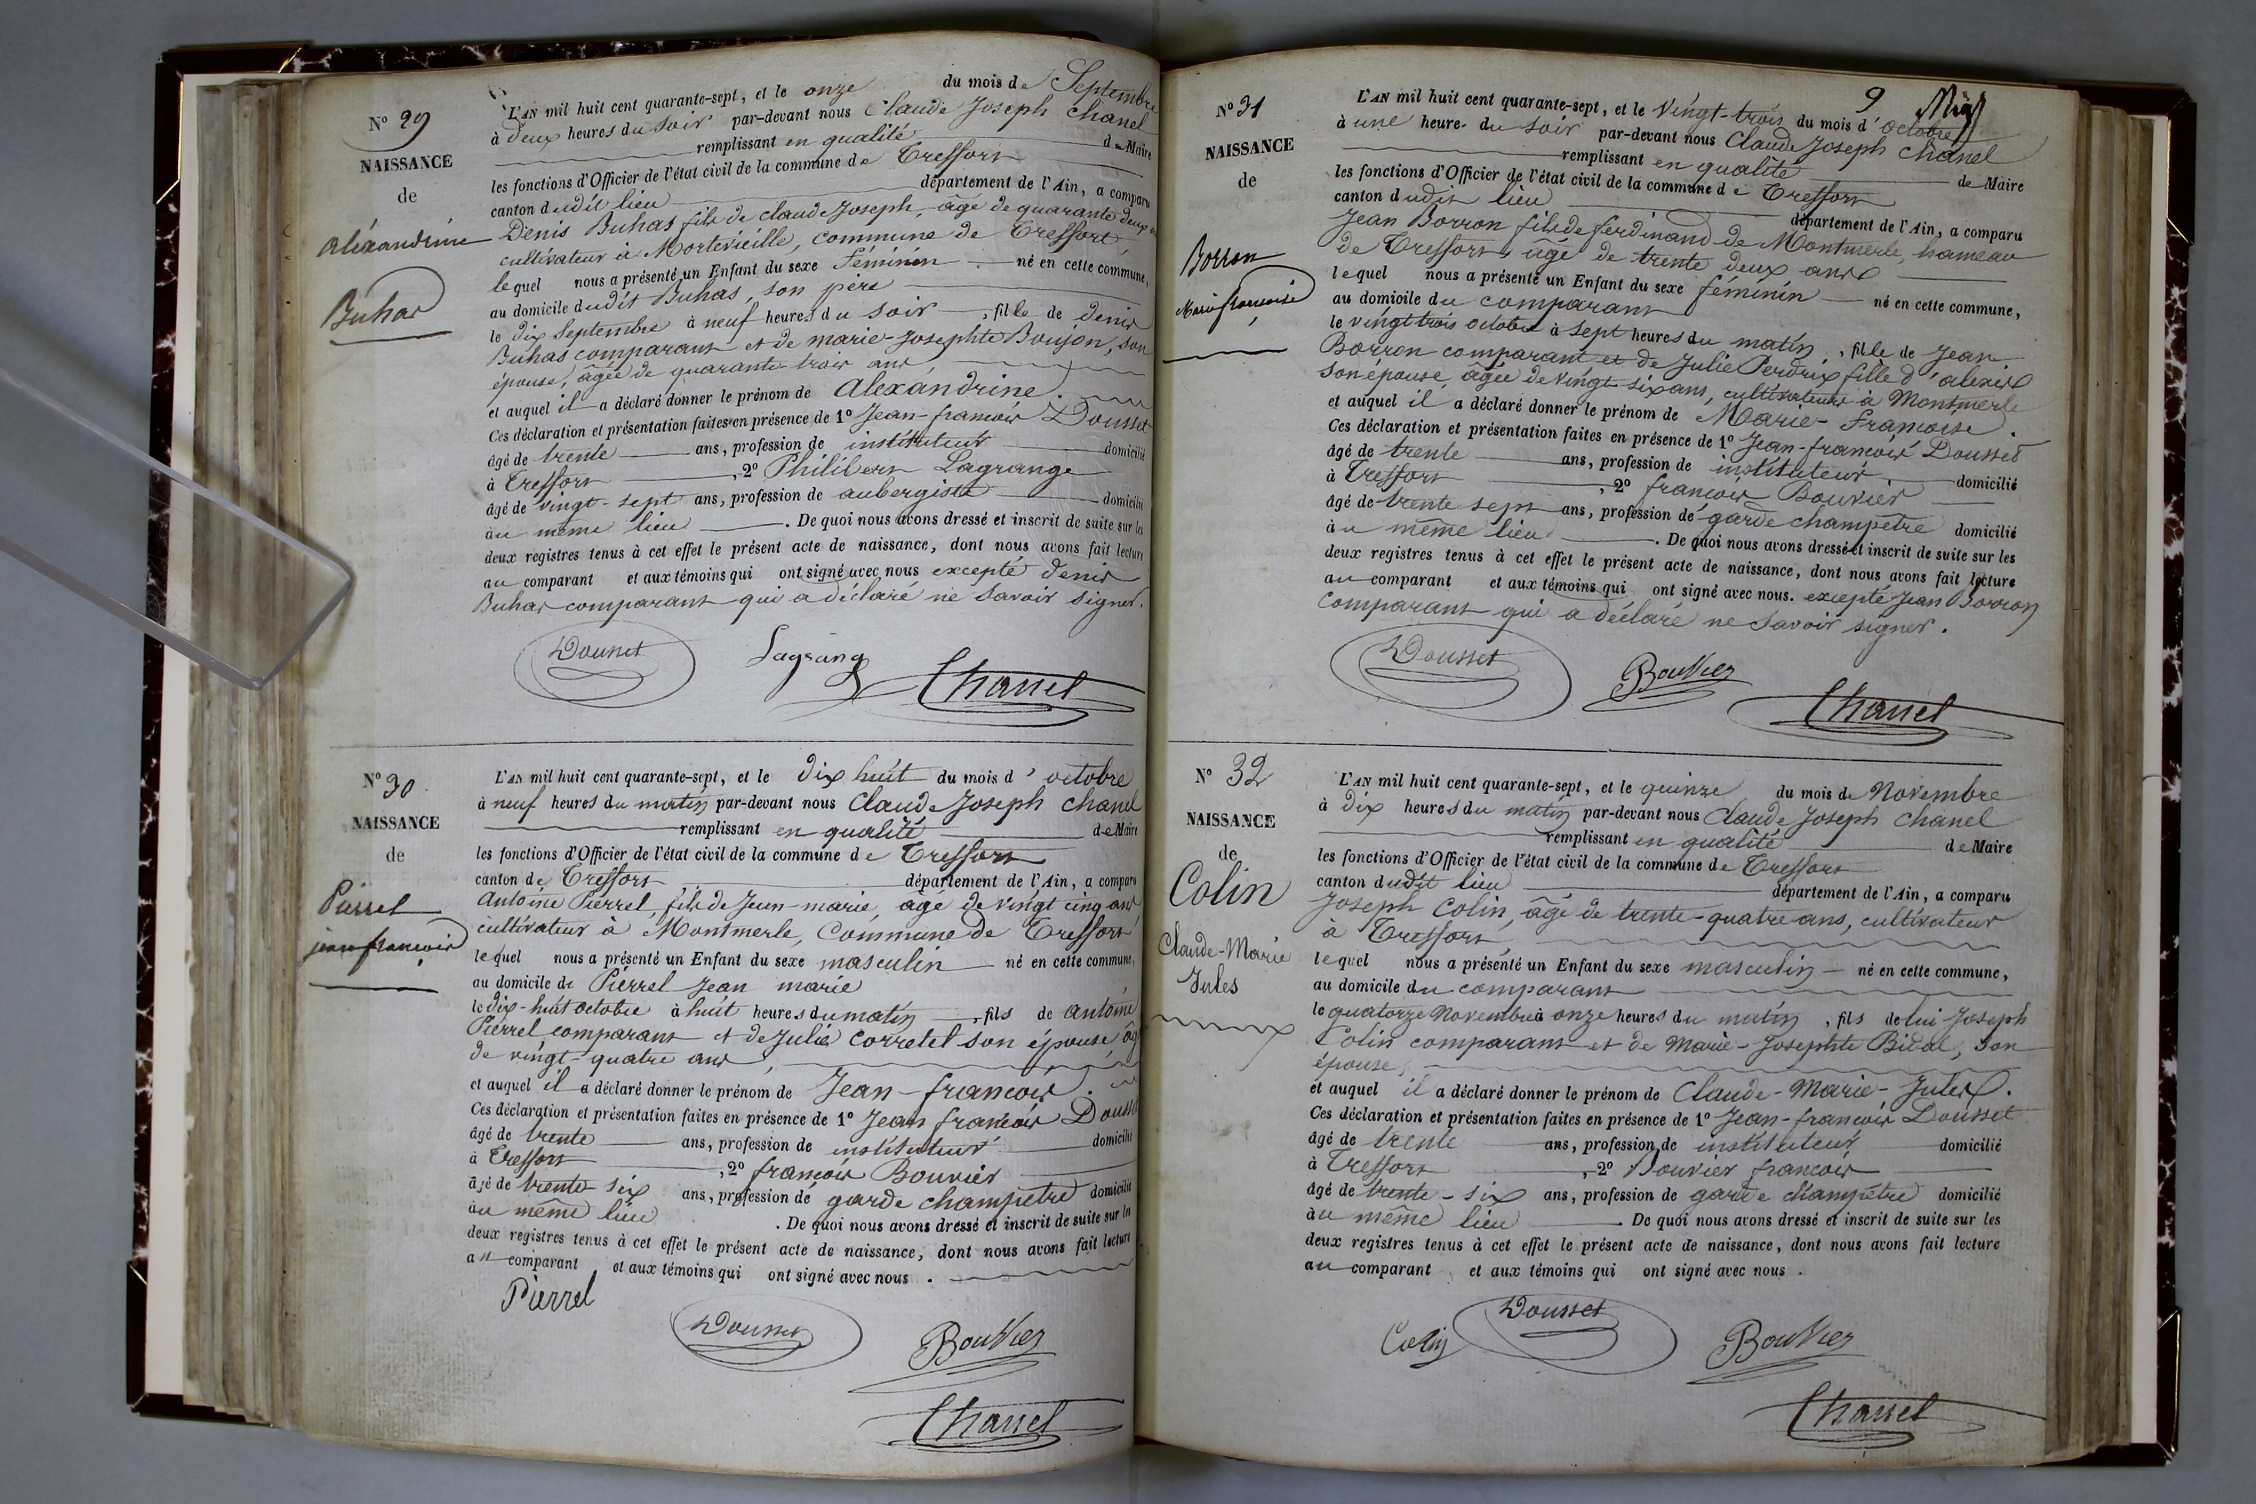 N° 29
NAISSANCE
de
alexandrine
Buhas
L'AN mil huit cent quarante-sept, et le onze du mois de Septembre
à deux heures du soir par-devant nous Claude Joseph Chanel
remplissant en qualité de Maire
les fonctions d'Officier de l'état civil de la commune de Treffort
canton dudit lieu département de l'Ain, a comparu
Denis Buhas fils de claude Joseph, âge de quarante deux
cultivateur à Mortevieille, commune de Treffort
lequel nous a présenté un Enfant du sexe féminin né en cette commune,
au domicile dudit Buhas, son père
le dix Septembre à neuf heures du soir, fille de denis
Buhas comparant et de marie-Josephte Boujon, son
épouse, âgée de quarante trois ans
et auquel il a déclaré donner le prénom de alexandrine.
Ces déclaration et présentation faites en présence de 1° Jean-françois Dousset
âgé de trente ans, profession de instituteur domicilié
à Treffort, 2° Philibert Lagrange
âgé de vingt-sept ans, profession de aubergiste domicilié
au même lieu. De quoi nous avons dressé et inscrit de suite sur les
deux registres tenus à cet effet le présent acte de naissance, dont nous avons fait lecture
au comparant et aux témoins qui ont signé avec nous excepté denis
Buhas comparant qui a déclaré ne savoir signer.
Dousset Lagrang Chanel
N° 30
NAISSANCE
de
Pierrel
jean françois
L'AN mil huit cent quarante-sept, et le dix huit du mois d'octobre
à neuf heures du matin par-devant nous Claude Joseph Chanel
remplissant en qualité de Maire
les fonctions d'Officier de l'état civil de la commune de Treffort
canton de Treffort département de l'Ain, a comparu
antoine Pierrel, fils de Jean-marie, âgé de vingt cinq ans
cultivateur à Montmerle, Commune de Treffort
lequel nous a présenté un Enfant du sexe masculin né en cette commune,
au domicile de Pierrel Jean marie
le dix-huit octobre à huit heures du matin, fils de antoine
Pierrel comparant et de Julie Corretel son épouse âg
de vingt-quatre ans,
et auquel il a déclaré donner le prénom de Jean-françois.
Ces déclaration et présentation faites en présence de 1° Jean françois Dousset
âgé de trente ans, profession de instituteur domicilié
à Treffort, 2° françois Bouvier
âgé de trente-six ans, profession de garde champêtre domicilié
au même lieu. De quoi nous avons dressé et inscrit de suite sur les
deux registres tenus à cet effet le présent acte de naissance, dont nous avons fait lecture
au comparant et aux témoins qui ont signé avec nous.
Pierrel
Dousset Bouvier
Chanel
9
N° 31
NAISSANCE
de
Borron
Marie françoise
L'AN mil huit cent quarante-sept, et le vingt-trois du mois d'octobre
à une heure du soir par-devant nous Claude Joseph Chanel
remplissant en qualité de Maire
les fonctions d'Officier de l'état civil de la commune de Treffort
canton dudit lieu département de l'Ain, a comparu
Jean Borron fils de ferdinand de Montmerle, hameau
de Treffort, âgé de trente deux ans
lequel nous a présenté un Enfant du sexe féminin né en cette commune,
au domicile du comparant
le vingt trois octobre à sept heures du matin, fille de Jean
Borron comparant et de Julie Perdrix fille d'alexis
son épouse, âgée de vingt-six ans, cultivateurs à Montmerle
et auquel il a déclaré donner le prénom de Marie-françoise.
Ces déclaration et présentation faites en présence de 1° Jean-françois Dousset
âgé de trente ans, profession de instituteur domicilié
à Treffort, 2° françois Bouvier
âgé de trente sept ans, profession de garde champêtre domicilié
au même lieu. De quoi nous avons dressé et inscrit de suite sur les
deux registres tenus à cet effet le présent acte de naissance, dont nous avons fait lecture
au comparant et aux témoins qui ont signé avec nous. excepté Jean Borron
comparant qui a déclaré ne savoir signer.
Dousset Bouvier Chanel
N° 32
NAISSANCE
de
Colin
Claude-Marie
Jules
L'AN mil huit cent quarante-sept, et le quinze du mois de Novembre
à dix heures du matin par-devant nous Claude Joseph Chanel
remplissant en qualité de Maire
les fonctions d'Officier de l'état civil de la commune de Treffort
canton dudit lieu département de l'Ain, a comparu
Joseph Colin, âgé de trente-quatre ans, cultivateur
à Treffort,
lequel nous a présenté un Enfant du sexe masculin né en cette commune,
au domicile du comparant
le quatorze Novembre à onze heures du matin, fils de lui Joseph
Colin comparant et de Marie-Josephte Bidal, son
épouse,
et auquel il a déclaré donner le prénom de Claude-Marie-Jules.
Ces déclaration et présentation faites en présence de 1° Jean-françois Dousset
âgé de trente ans, profession de instituteur domicilié
à Treffort, 2° Bouvier françois
âgé de trente-six ans, profession de garde champêtre domicilié
au même lieu. De quoi nous avons dressé et inscrit de suite sur les
deux registres tenus à cet effet le présent acte de naissance, dont nous avons fait lecture
au comparant et aux témoins qui ont signé avec nous.
Colin Dousset Bouvier
Chanel